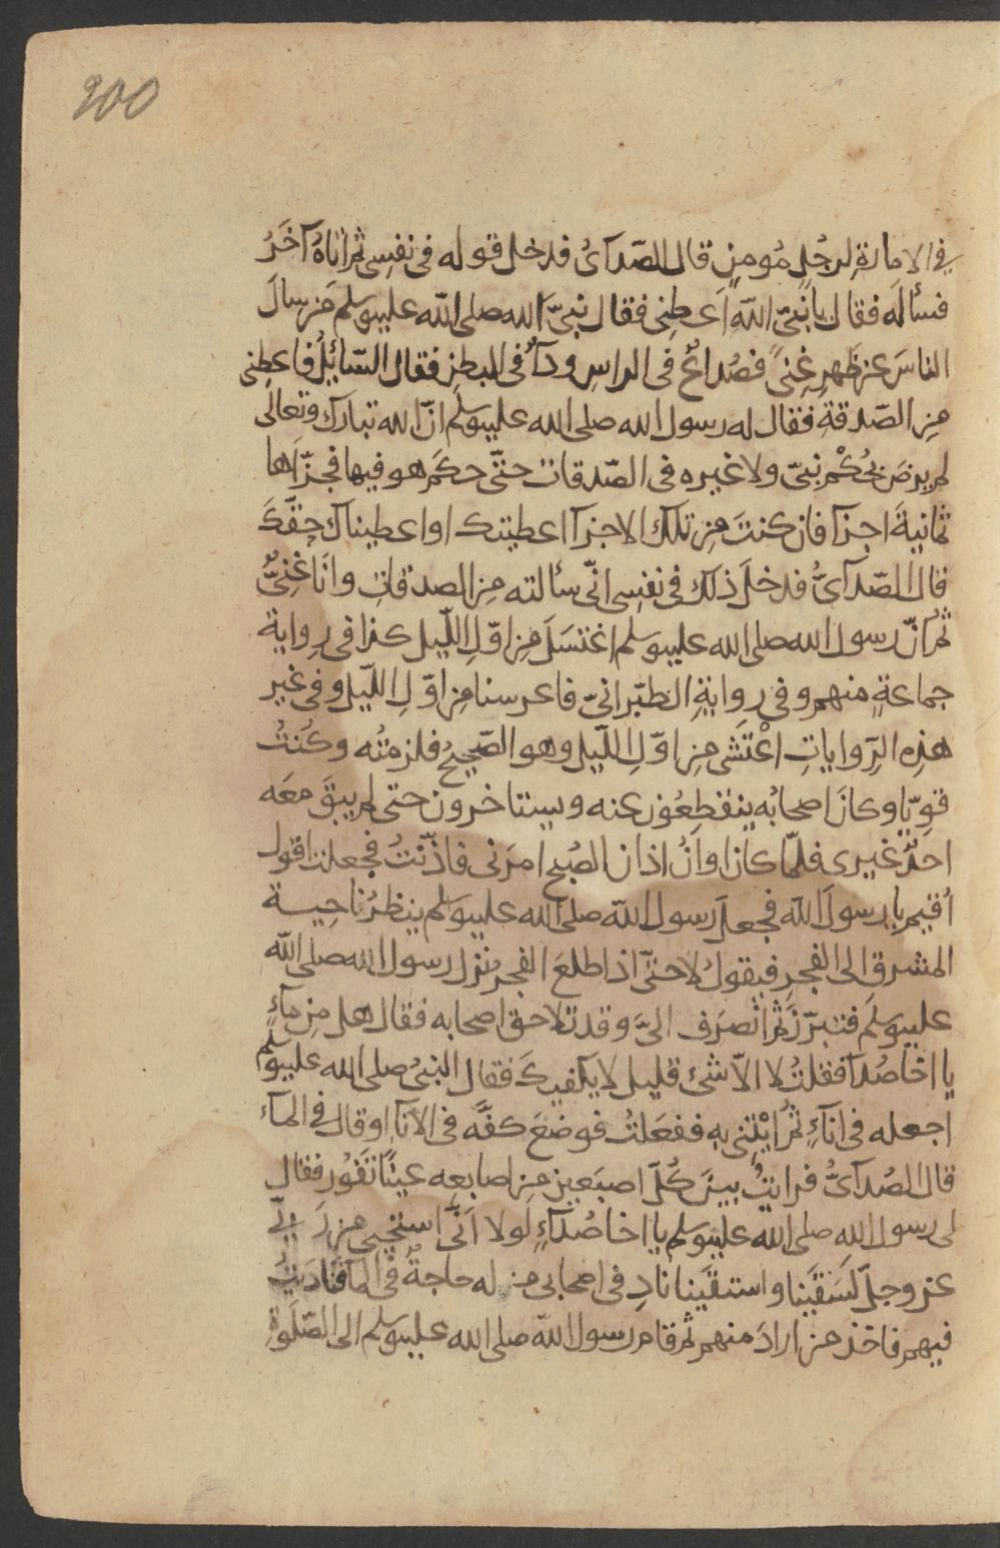 200
في الامارةِ لرجُلٍ مُومنٍ قال الصّدآئُ فدخل قوله فى نفسِى ثم اتاهُ آخَرُ
فسألَه فقال يا نبىّ اللّهِ اَعطِنِى فقال نبىّ الله صلى اللّه عليه وسلم مَن سالَ
الناسَ عن ظَهرِ غِنىً فصُداعٌ فى الراسِ ودآءٌ فى البطنِ فقال السّائِلُ فاعطِنى
مِن الصّدقةِ فقال له رسول الله صلى الله عليه وسلم انّ الله تبارك وتعالى
لم يرضَ بحُكْمِ نبىّ ولا غيره فى الصّدقات حتَّى حكَمَ هو فيها فجزّاها
ثمانيةَ اجزآ فان كنتَ مِن تلك الاجزآ اعطيتك او اعطيناك حقَّكَ
قال الصّدآىُّ فدخلَ ذلك فى نفسِى انّى سألته مِن الصدقاتِ وانَا غنِىٌّ
ثم انّ رسول الله صلى الله عليه وسلم اغتسَلَ مِن اوّلِ اللّيل كذا فى رِواية
جماعةٍ منهم وفى رِوايةِ الطبّرانىّ فاعرسنا مِن اوّلِ اللّيل وفى غير
هذِه الرِّواياتِ اعْتَشَى مِن اوّلِ اللّيل وهو الصّحيحُ فلزمتُه وكُنتُ
قوِيّا وكانَ اصحابُه ينقطِعُون عنه ويستاخرون حتى لم يبقَ معَه
احدٌ غيرى فلمّا كان اوانُ اذان الصُبح امرَنى فاذّنتُ فجعلت اقول
أقيم يا رسولَ اللّه فجعلَ رسول اللّه صلى الله عليه وسلم ينظرُ ناحِيـة
المشرق الى الفجرِ فيقولُ لا حتَّى اذا طلعَ الفجر نزل رسول الله صلى اللّه
عليه وسلم فتبرّزَ ثم انصرَف الىَّ وقد تلاحق اصحابه فقال هل مِن مآءٍ
يا اخا صُدآ فقلتُ لا الاّ شئ قليل لا يكفيكَ فقال النبىُ صلى الله عليه وسلم
اجعله فى انآءٍ ثم ايْتِنى بِهِ ففعَلتُ فوضعَ كفَّه فى الانآ او قال في المآء
قال الصُدآىُّ فرايتُ بينَ كُلّ اصبَعين مِن اصابعِه عينًا تفُور فقال
لى رسول اللهِ صلى الله عليه وسلم يا اخا صُدآءٍ لولا انّى استحْيِى مِن ربّى
عز وجلّ لَسَقَينَا واستقَينا نادِ فى اصحابى من له حاجةٌ فى المآ فنادَيتُ
فيهم فاخذ من ارادَ منهم ثم قام رسول اللّه صلى الله عليه وسلم الى الصّلوةِ